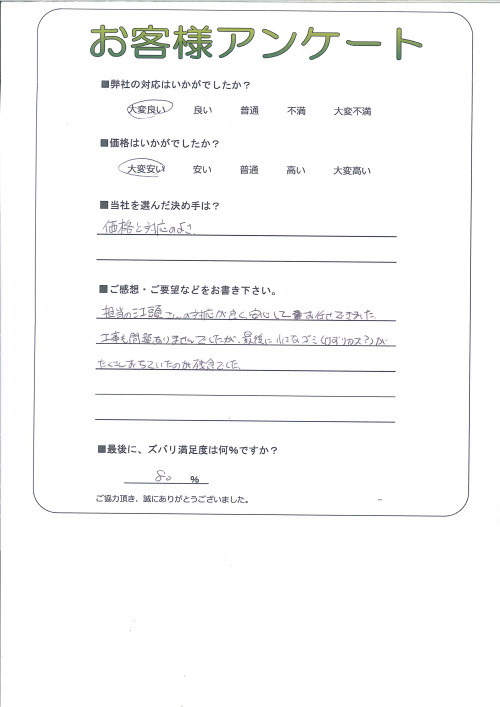 お客様アンケート
■弊社の対応はいかがでしたか？
大変良い 良い 普通 不満 大変不満
■価格はいかがでしたか？
大変安い 安い 普通 高い 大変高い
■当社を選んだ決め手は？
価格と対応のよさ
■ご感想・ご要望などをお書き下さい。
担当の江頭さんの対応が良く、安心してお任せできました。
工事も問題ありませんでしたが、最後に小さなゴミ(けずりカス?)が
たくさんおちていたのが残念でした。
■最後に、ズバリ満足度は何%ですか？
80 %
ご協力頂き、誠にありがとうございました。